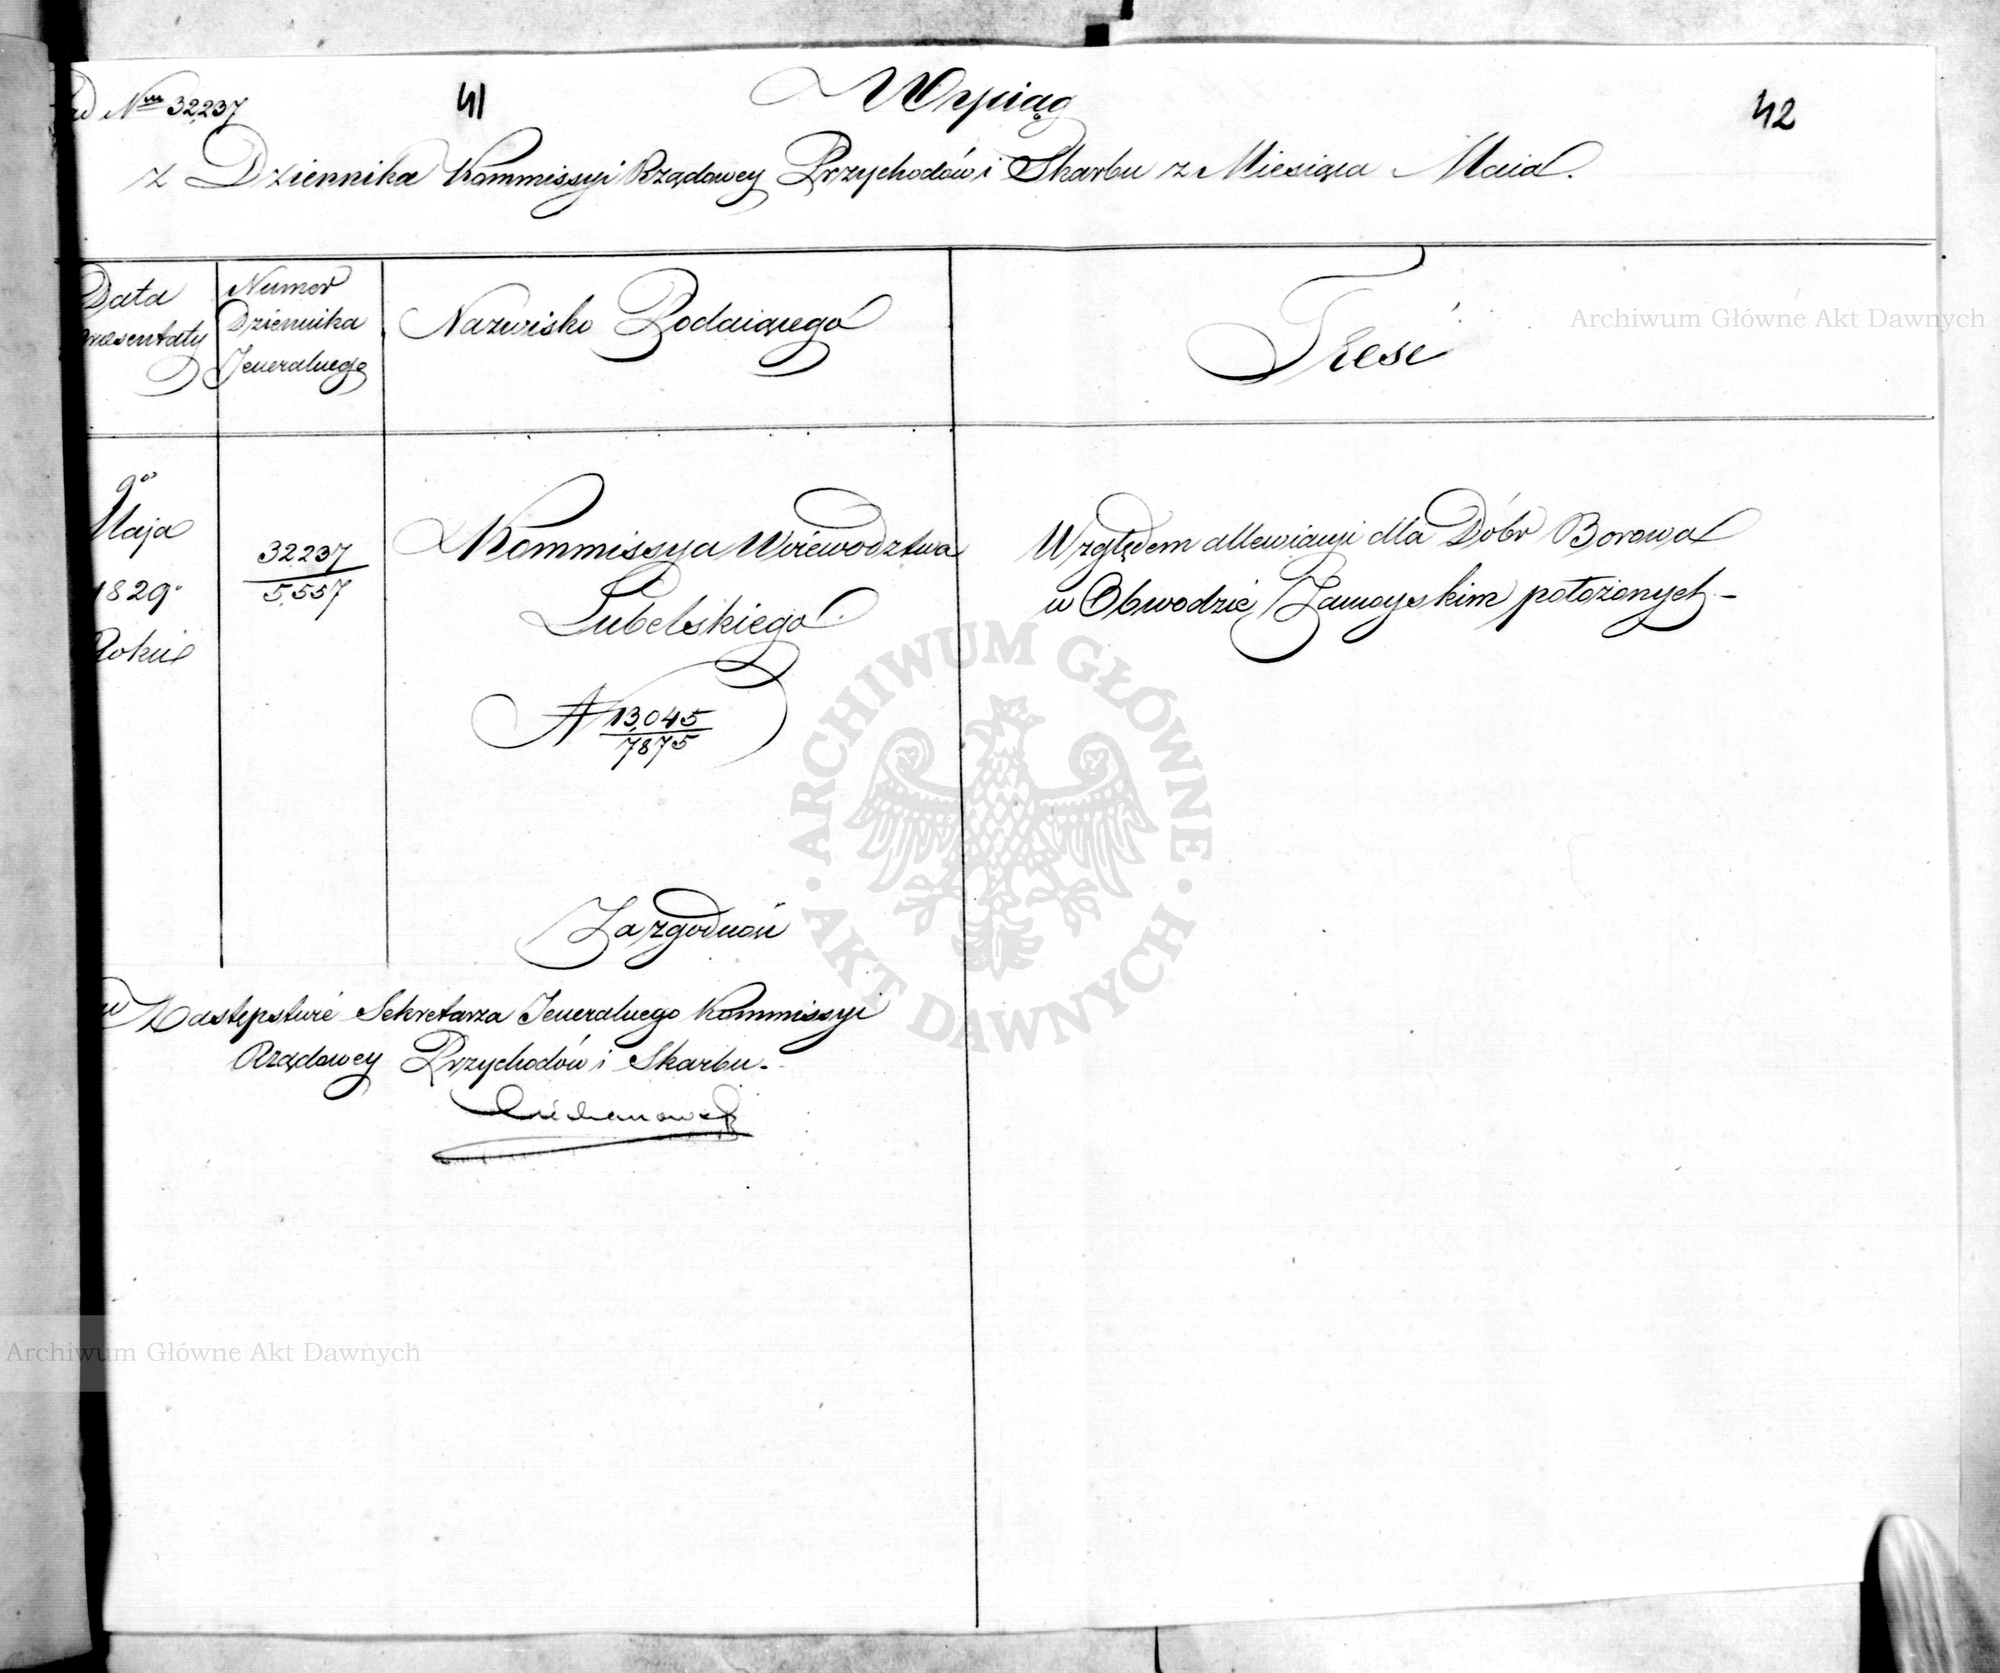 ad Nrm 32,237
41
Wyciąg
42
z Dziennika Kommissyi Rządowey Przychodów i Skarbu z Miesiąca Maia.
Data
Presentaty
Numer
Dziennika
Jeneralnego
Nazwisko Podaiącego
Treść
9go
Maja
1829.
Roku
32237
5,557
Kommissya Woiewodztwa
Lubelskiego.
N 13,045
7875
Względem allewiacyi dla Dóbr Borowa
w Obwodzie Zamoyskim położonych.–
Za zgodność
w Zastępstwie Sekretarza Jeneralnego Kommissyi
Rządowey Przychodów i Skarbu.
Archiwum Główne Akt Dawnych
ARCHIWUM GŁÓWNE · AKT DAWNYCH ·
Archiwum Główne Akt Dawnych